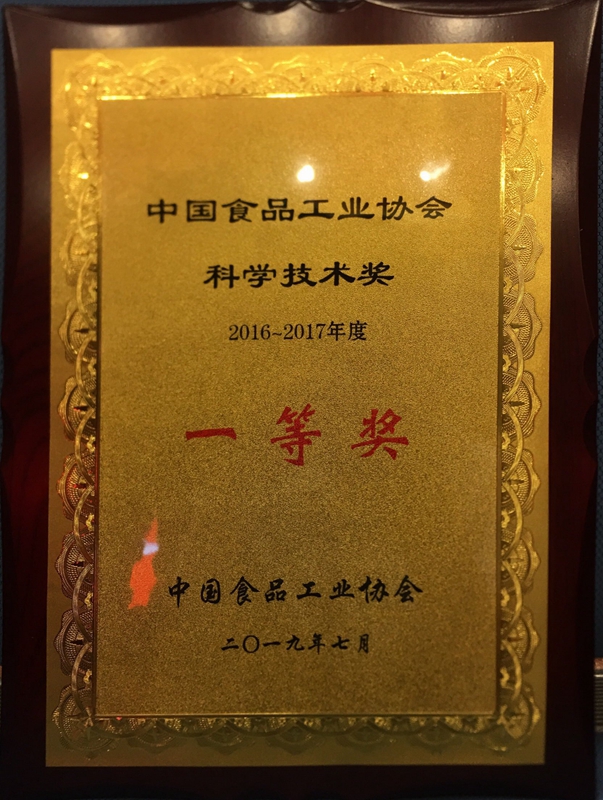 中国食品工业协会
科学技术奖
2016~2017年度
一等奖
中国食品工业协会
二〇一九年七月